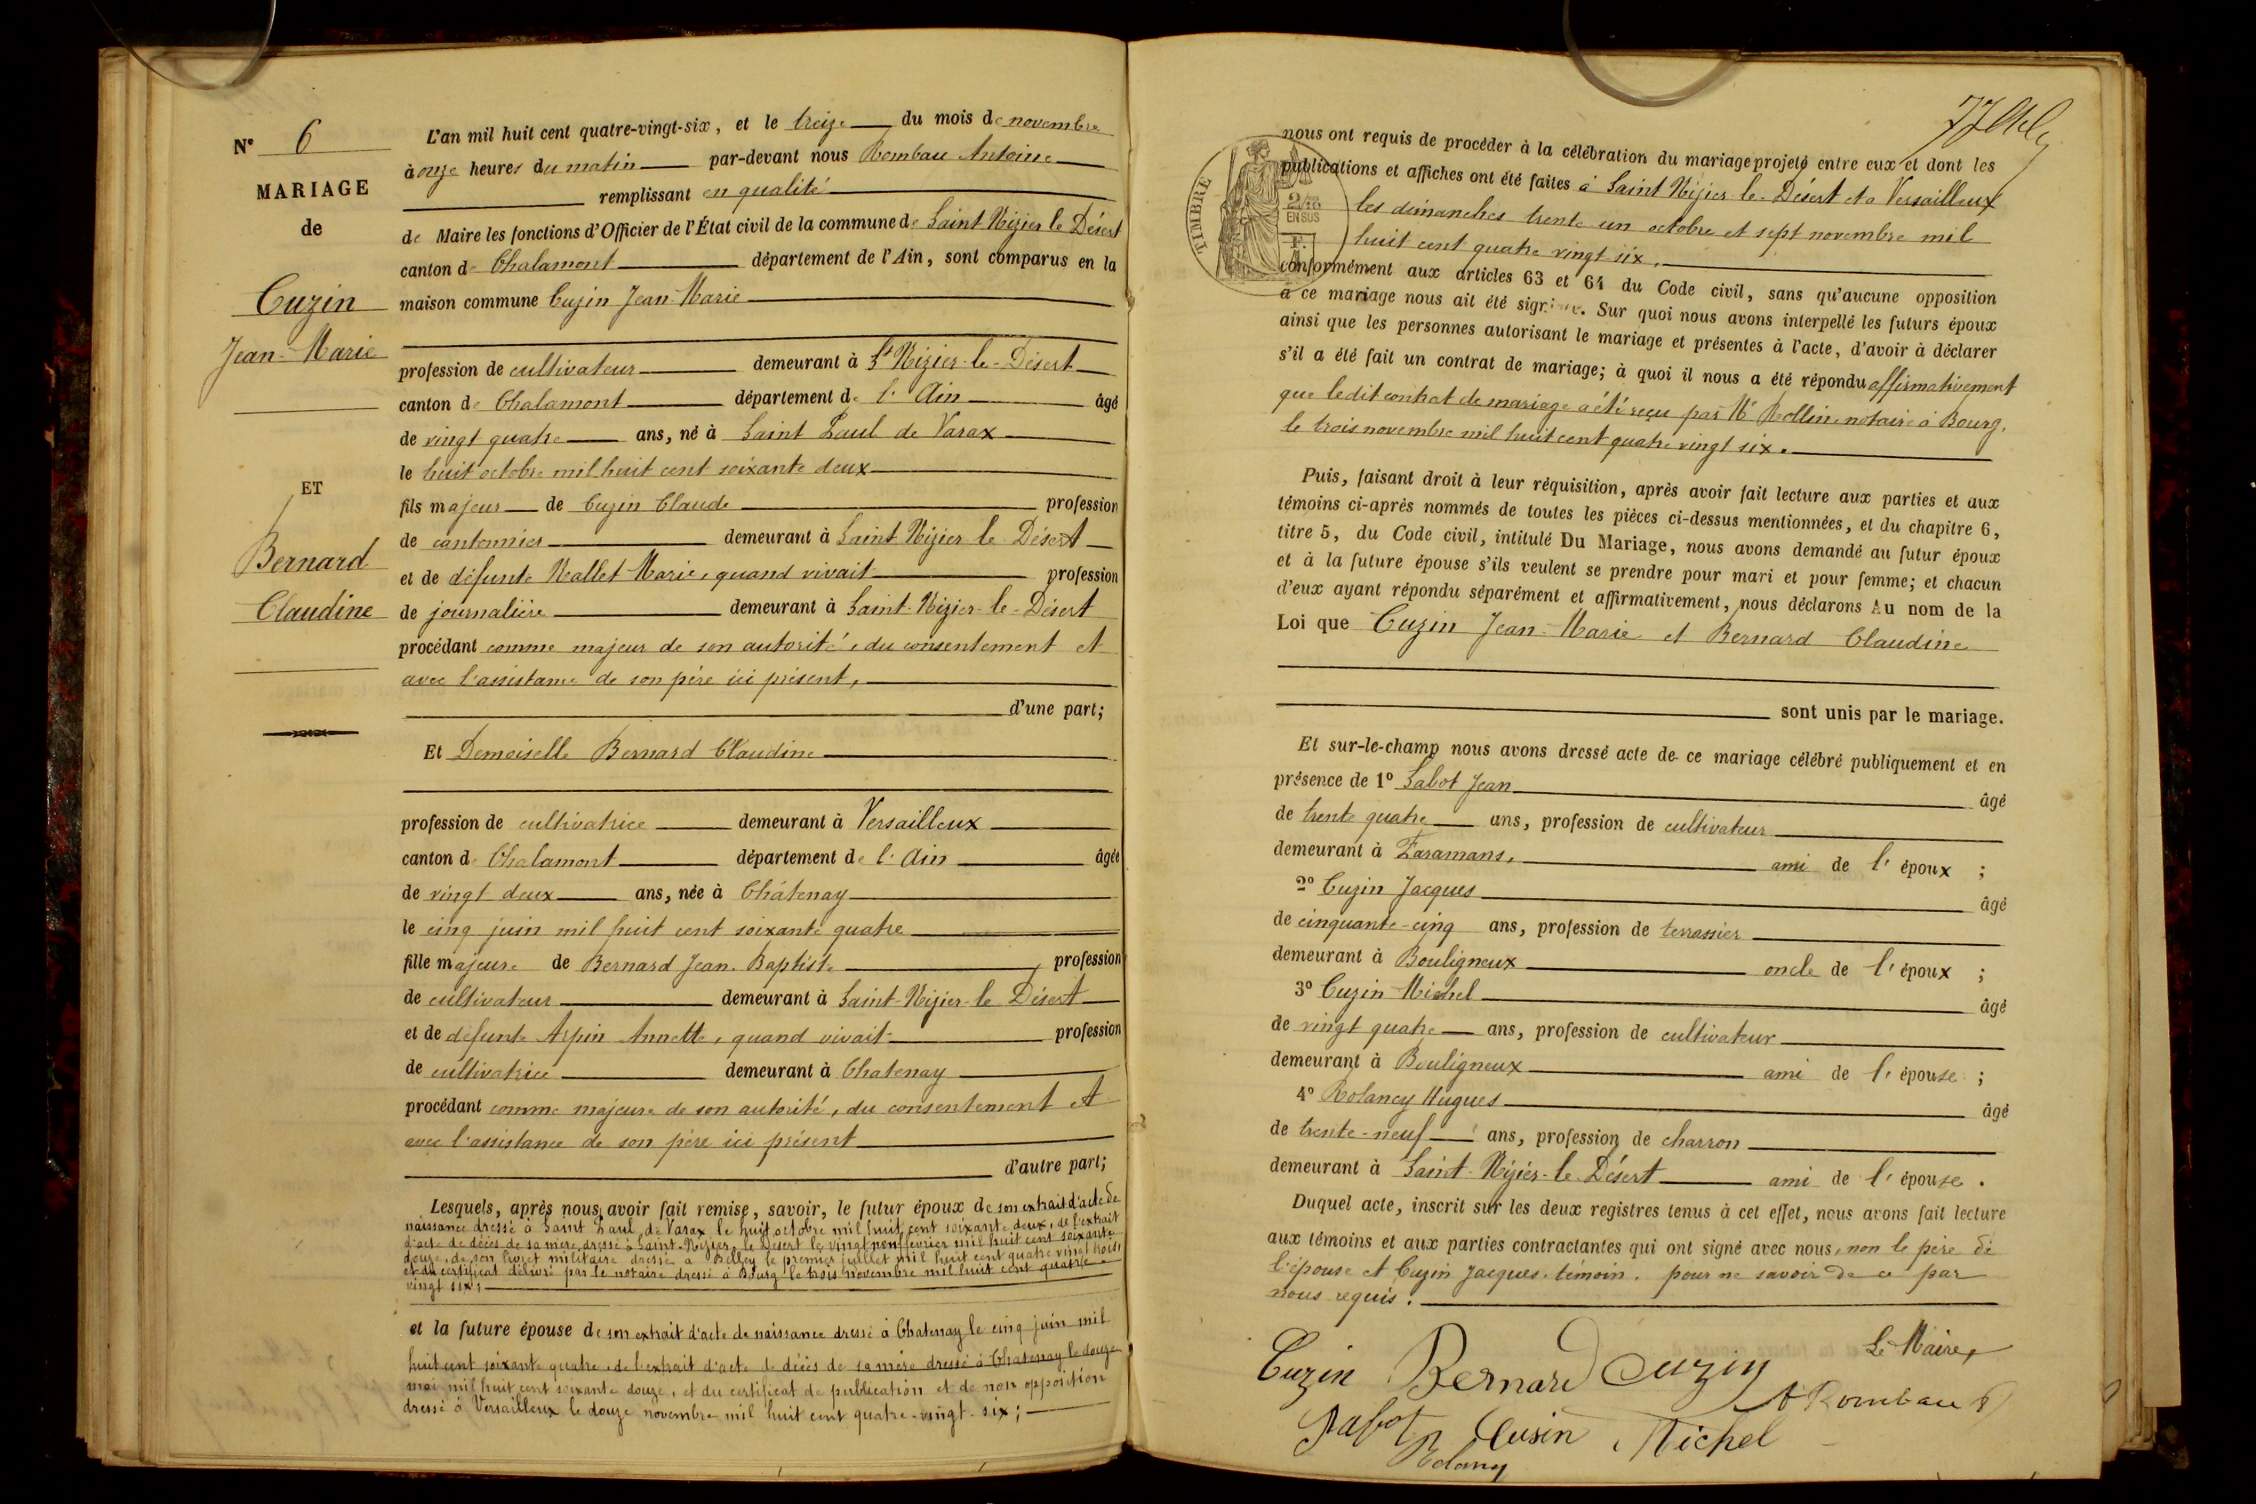 N° 6
MARIAGE
de
Cuzin
Jean-Marie
ET
Bernard
Claudine
L'an mil huit cent quatre-vingt-six, et le treize du mois de novembre
à onze heures du matin par-devant nous Rombau Antoine
remplissant en qualité
de Maire les fonctions d'Officier de l'État civil de la commune de Saint Nizier le Désert
canton de Chalamont département de l'Ain, sont comparus en la
maison commune Cuzin Jean-Marie
profession de cultivateur demeurant à St Nizier-le-Désert
canton de Chalamont département de l'Ain âgé
de vingt quatre ans, né à Saint Paul de Varax
le huit octobre mil huit cent soixante deux
fils majeur de Cuzin Claude profession
de cantonnier demeurant à Saint-Nizier le Désert
et de défunte Mallet Marie, quand vivait profession
de journalière demeurant à Saint-Nizier-le-Désert
procédant comme majeur de son autorité, du consentement et
avec l'assistance de son père ici présent,
d'une part;
Et Demoiselle Bernard Claudine
profession de cultivatrice demeurant à Versailleux
canton de Chalamont département de l'Ain âgée
de vingt deux ans, née à Châtenay
le cinq juin mil huit cent soixante quatre
fille majeure de Bernard Jean-Baptiste, profession
de cultivateur demeurant à Saint-Nizier-le Désert
et de défunte Arpin Annette, quand vivait profession
de cultivatrice demeurant à Chatenay
procédant comme majeure de son autorité, du consentement et
avec l'assistance de son père ici présent
d'autre part;
Lesquels, après nous avoir fait remise, savoir, le futur époux de son extrait d'acte de
naissance dressé à Saint Paul de Varax le huit octobre mil huit cent soixante deux, de l'extrait
d'acte de décès de sa mère dressé à Saint-Nizier le Désert le vingt neuf février mil huit cent soixante
douze, de son livret militaire dressé à Belley le premier juillet mil huit cent quatre vingt trois
et du certificat délivré par le notaire dressé à Bourg le trois novembre mil huit cent quatre
vingt six;
et la future épouse de son extrait d'acte de naissance dressé à Chatenay le cinq juin mil
huit cent soixante quatre, de l'extrait d'acte de décès de sa mère dressé à Chatenay le douze
mai mil huit cent soixante douze, et du certificat de publication et de non opposition
dressé à Versailleux le douze novembre mil huit cent quatre-vingt-six;
TIMBRE
2/10
EN SUS
nous ont requis de procéder à la célébration du mariage projeté entre eux et dont les
publications et affiches ont été faites à Saint Nizier le-Désert et à Versailleux
les dimanches trente un octobre et sept novembre mil
huit cent quatre vingt six,
conformément aux articles 63 et 64 du Code civil, sans qu'aucune opposition
à ce mariage nous ait été signifiée. Sur quoi nous avons interpellé les futurs époux
ainsi que les personnes autorisant le mariage et présentes à l'acte, d'avoir à déclarer
s'il a été fait un contrat de mariage; à quoi il nous a été répondu affirmativement
que le dit contrat de mariage a été reçu par Me Rollin notaire à Bourg,
le trois novembre mil huit cent quatre vingt six.
Puis, faisant droit à leur réquisition, après avoir fait lecture aux parties et aux
témoins ci-après nommés de toutes les pièces ci-dessus mentionnées, et du chapitre 6,
titre 5, du Code civil, intitulé Du Mariage, nous avons demandé au futur époux
et à la future épouse s'ils veulent se prendre pour mari et pour femme; et chacun
d'eux ayant répondu séparément et affirmativement, nous déclarons Au nom de la
Loi que Cuzin Jean-Marie et Bernard Claudine
sont unis par le mariage.
Et sur-le-champ nous avons dressé acte de ce mariage célébré publiquement et en
présence de 1° Sabot Jean âgé
de trente quatre ans, profession de cultivateur
demeurant à Faramans, ami de l'époux;
2° Cuzin Jacques âgé
de cinquante-cinq ans, profession de terrassier
demeurant à Bouligneux oncle de l'époux;
3° Cuzin Michel âgé
de vingt quatre ans, profession de cultivateur
demeurant à Bouligneux ami de l'épouse;
4° Rolancy Hugues âgé
de trente-neuf ans, profession de charron
demeurant à Saint-Nizier-le-Désert ami de l'épouse.
Duquel acte, inscrit sur les deux registres tenus à cet effet, nous avons fait lecture
aux témoins et aux parties contractantes qui ont signé avec nous, non le père de
l'épouse et Cuzin Jacques, témoin, pour ne savoir de ce par
nous requis.
Le Maire,
Cuzin Bernard Cuzin
A Rombau
Sabot Cusin Michel
Rolancy